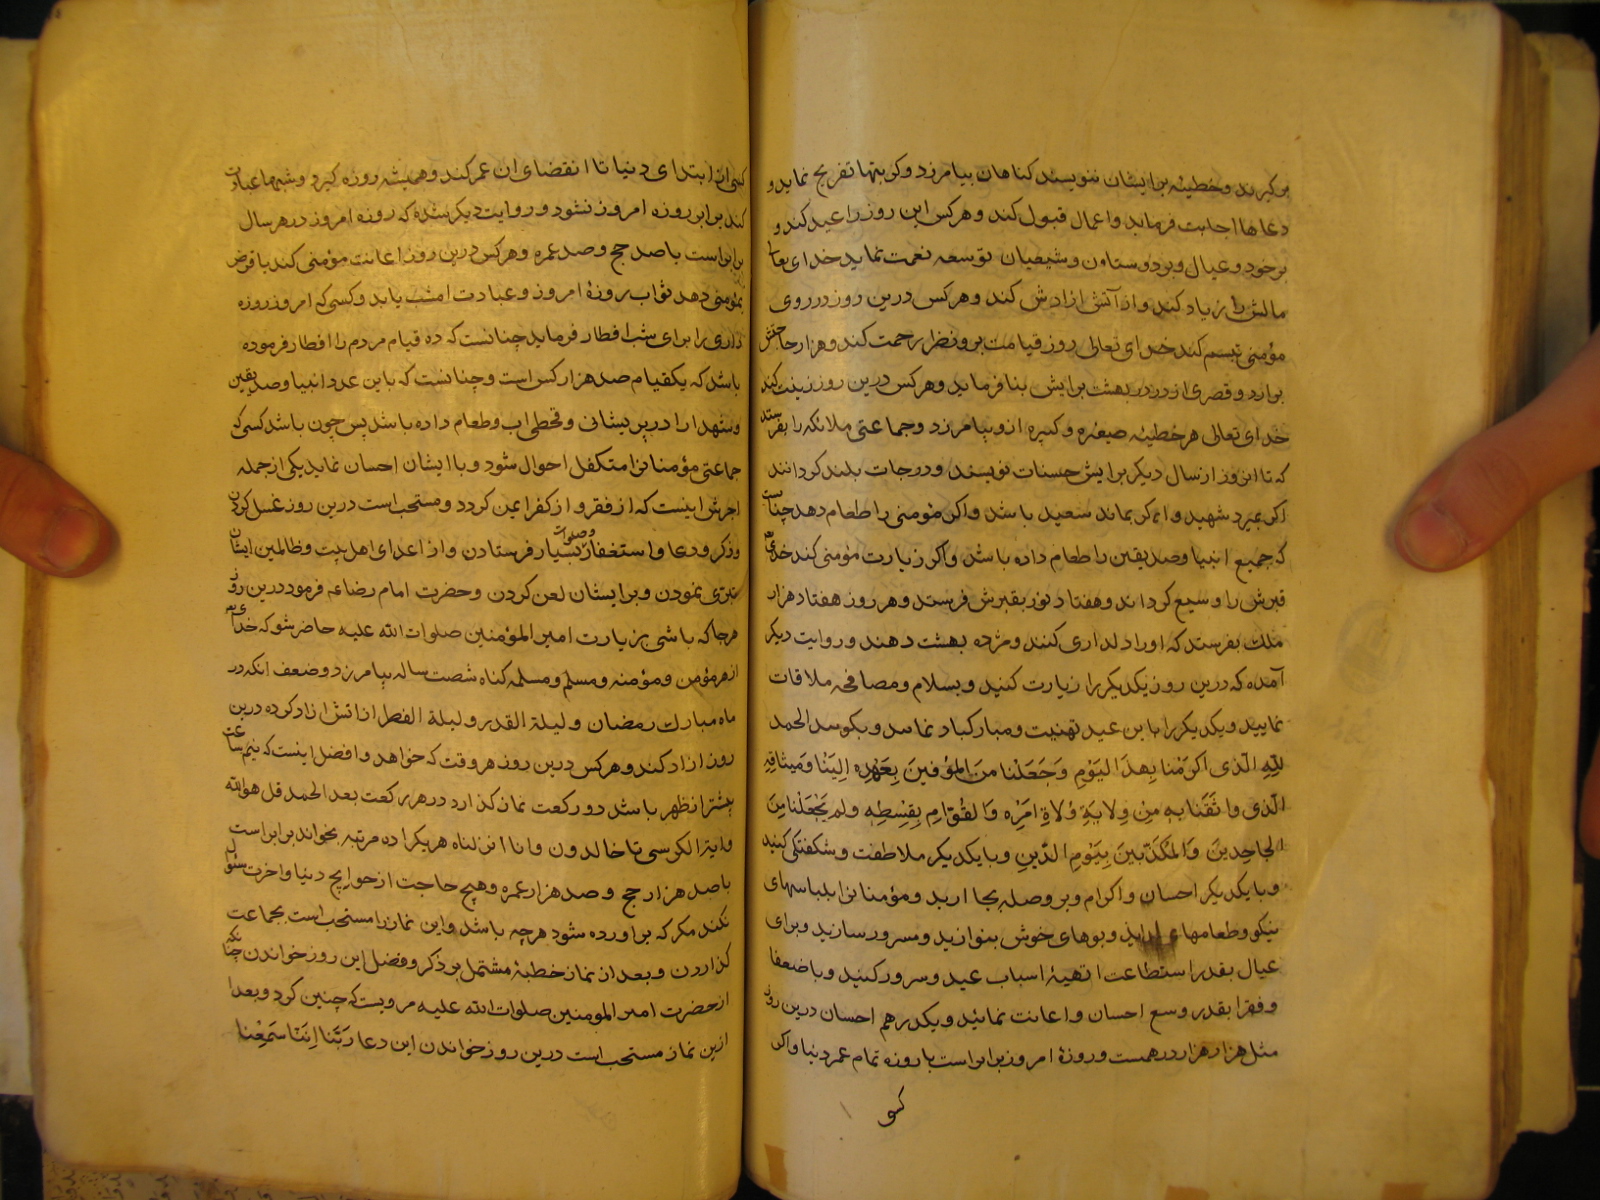 برگیرند وخطیئه برایشان ننویسند کناهان بیامرزد وکربتها تفریج نماید و
دعاها اجابت فرماید واعمال قبول کند وهرکس این روز را عید کند و
بر خود وعیال وبر دوستان وشیعیان توسعه نعمت نماید خدای تعالی
مالش را زیاد کند واز آتش ازادش کند وهرکس درین روز در روی
مؤمنی تبسم کند خدای تعالی روز قیامت برو نظر رحمت کند وهزار حاجتش
برارد وقصری از در در بهشت برایش بنا فرماید وهرکس درین روز زینت کند
خدای تعالی هر خطیئه صغیره وکبیره ازو بیامرزد وجماعتی ملائکه را بفرستد
که تا انروز از سال دیکر برایش حسنات نویسند ودرجات بلند کردانند
اکر بمیرد شهید و اکر بماند سعید باشد واکر مؤمنی را طعام دهد چنانست
که جمیع انبیا وصدیقین را طعام داده باشد واکر زیارت مؤمنی کند خدای
قبرش را وسیع کرداند وهفتاد نور بقبرش فرستد وهر روز هفتاد هزار
ملک بفرستد که او را دلداری کنند ومژده بهشت دهند وروایت دیکر
آمده که درین روز یکدیکر را زیارت کنید وبسلام ومصافحه ملاقات
نمایید ویکدیکر را باین عید تهنیت ومبارکباد نمایید وبکویید الحمد
لِلّهِ الَّذی اکرَمَنا بِهذَا الیَومِ وَجَعَلَنا مِنَ المُؤفینَ بِعَهْدِه اِلَیْنا وَمیثاقِه
الَّذی واثَقَنا بِهِ مِنْ وِلایَةِ وُلاةِ اَمْرِه وَالقُوّامِ بِقِسْطِهِ ولم یَجْعَلْنا مِنَ
الجاحِدینَ وَالمُکَذِّبینَ بِیَومِ الدّینِ وبا یکدیکر ملاطفت وشکفتکی کنید
وبا یکدیکر احسان واکرام وبر وصله بجا ارید ومؤمنانرا بلباسهای
نیکو وطعامهای لذیذ وبوهای خوش بنوازید ومسرور سازید وبرای
عیال بقدر استطاعت تهیهٔ اسباب عید وسرور کنید وبا ضعفا
وفقرا بقدر وسع احسان واعانت نمائید ویکدرهم احسان درین روز
مثل هزار هزار درهمست وروزهٔ امروز برابراست با روزه تمام عمر دنیا واکر
کسی
کسی از ابتدای دنیا تا انقضای ان عمر کند وهمیشه روزه کیرد وشبها عبادت
کند برابر روزه امروز نشود وروایت دیکر شده که روزه امروز در هر سال
برابراست با صد حج وصد عمره وهرکس درین روز اعانت مؤمنی کند یا قرض
بمؤمنی دهد ثواب روزهٔ امروز وعبادت امشب یابد وکسی که امروز روزه
داری را برای شب افطار فرماید چنانست که ده قیام مردم را افطار فرموده
باشد که یکقیام صد هزار کس است وچنانست که باین عدد انبیا وصدیقین
وشهدا را در پریشانی وقحطی اب وطعام داده باشد پس چون باشد کسی که
جماعتی مؤمنانرا متکفل احوال شود وباایشان احسان نماید یکی از جمله
اجرش اینست که از فقر و از کفر ایمن کردد ومستحب است درین روز غسل کردن
وذکر ودعا واستغفار وصلوات بسیار فرستادن واز اعدای اهل بیت وظالمین ایشان
تبری نمودن وبرایشان لعن کردن وحضرت امام رضا ع فرمود درین روز
هر جا که باشی بزیارت امیر المؤمنین صلوات الله علیه حاضر شو که خدای
از هر مؤمن ومؤمنه ومسلم ومسلمه کناه شصت ساله بیامرزد وضعف انکه در
ماه مبارک رمضان ولیلة القدر ولیلة الفطر از آتش ازاد کرده درین
روز ازاد کند وهرکس درین روز هر وقت که خواهد وافضل اینست که نیم ساعت
پیشتر از ظهر باشد دو رکعت نماز کذارد در هر رکعت بعد الحمد قل هو الله
وایة الکرسی تا خالدون وانا انزلناه هریکرا ده مرتبه بخواند برابراست
با صد هزار حج وصد هزار عمره وهیچ حاجت از حوایج دنیا واخرت سؤال
نکند مکر که براورده شود هرچه باشد واین نماز را مستحب است بجماعت
کذاردن وبعد از نماز خطبهٔ مشتمل بر ذکر وفضل این روز خواندن چنانکه
از حضرت امیر المومنین صلوات الله علیه مرویست که چنین کرد وبعد
ازین نماز مستحب است درین روز خواندن این دعا رَبَّنا اِنَّنا سَمِعْنا